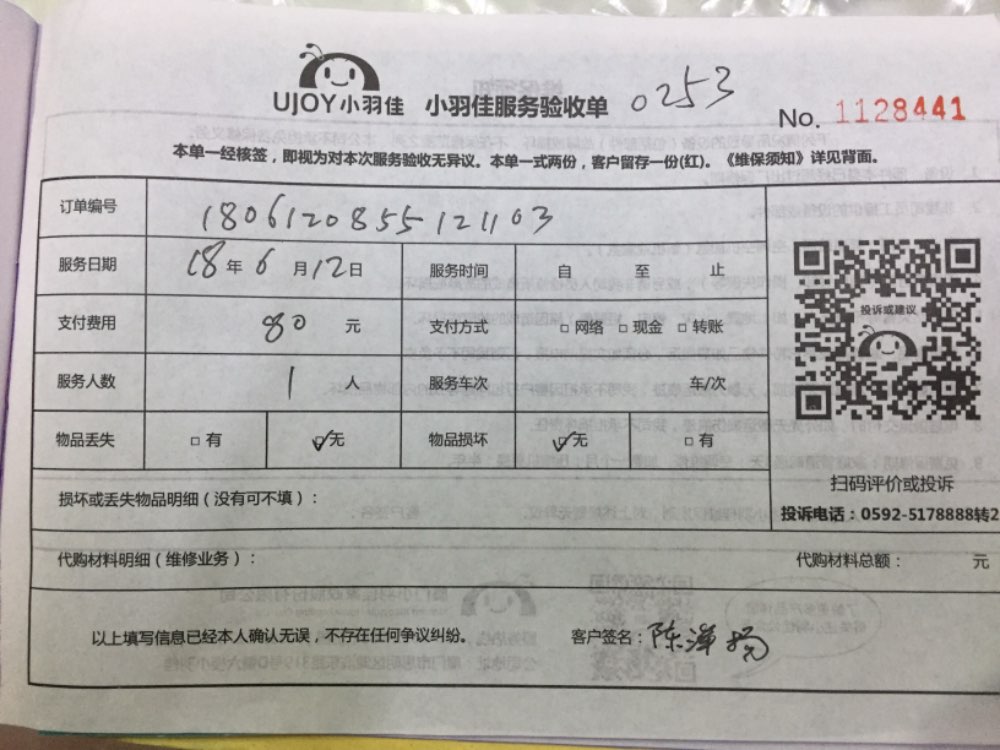 UJOY小羽佳 小羽佳服务验收单 0253
No. 1128441
本单一经核签，即视为对本次服务验收无异议。本单一式两份，客户留存一份(红)。《维保须知》详见背面。
订单编号 1806120855121103
服务日期 18年6月12日 服务时间 自 至 止
支付费用 80 元 支付方式 □网络 □现金 □转账
投诉或建议
服务人数 1 人 服务车次 车/次
物品丢失 □有 ☑无 物品损坏 ☑无 □有
扫码评价或投诉
损坏或丢失物品明细（没有可不填）：
投诉电话：0592-5178888转2
代购材料明细（维修业务）： 代购材料总额： 元
以上填写信息已经本人确认无误，不存在任何争议纠纷。 客户签名：陈泽扬